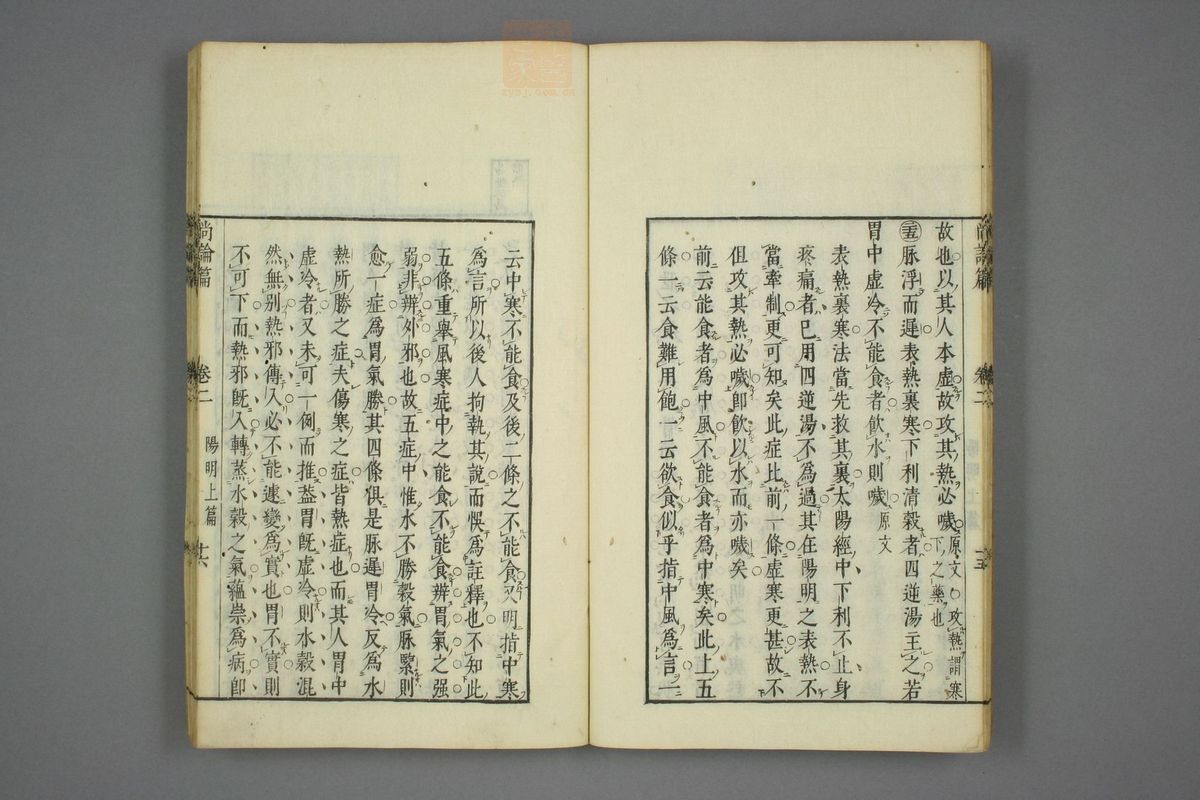 尚論篇
卷二
十五
故也以其人本虛故攻其熱必噦原文○攻熱謂寒下之藥也
五脉浮而遲表熱裏寒下利清穀者四逆湯主之若
胃中虛冷不能食者飲水則噦原文
表熱裏寒法當先救其裏太陽經中下利不止身
疼痛者已用四逆湯不爲過其在陽明之表熱不
當牽制更可知矣此症比前一條虛寒更甚故不
但攻其熱必噦卽飮以水而亦噦矣
前云能食者爲中風不能食者爲中寒矣此上五
條一云食難用飽一云欲食似乎指中風爲言一
云中寒不能食及後二條之不能食又明指中寒
爲言所以後人拘執其說而悞爲註釋也不知此
五條重舉風寒症中之能食不能食辨胃氣之强
弱非辨外邪也故五症中惟水不勝穀氣脉緊則
愈一症爲胃氣勝其四條俱是脉遲胃冷反爲水
熱所勝之症夫傷寒之症皆熱症也而其人胃中
虛冷者又未可一例而推葢胃旣虛冷則水穀混
然無别熱邪傳入必不能遽變爲實也胃不實則
不可下而熱邪旣入轉蒸水穀之氣蘊祟爲病卽
尚論篇
卷二
陽明上篇
十六